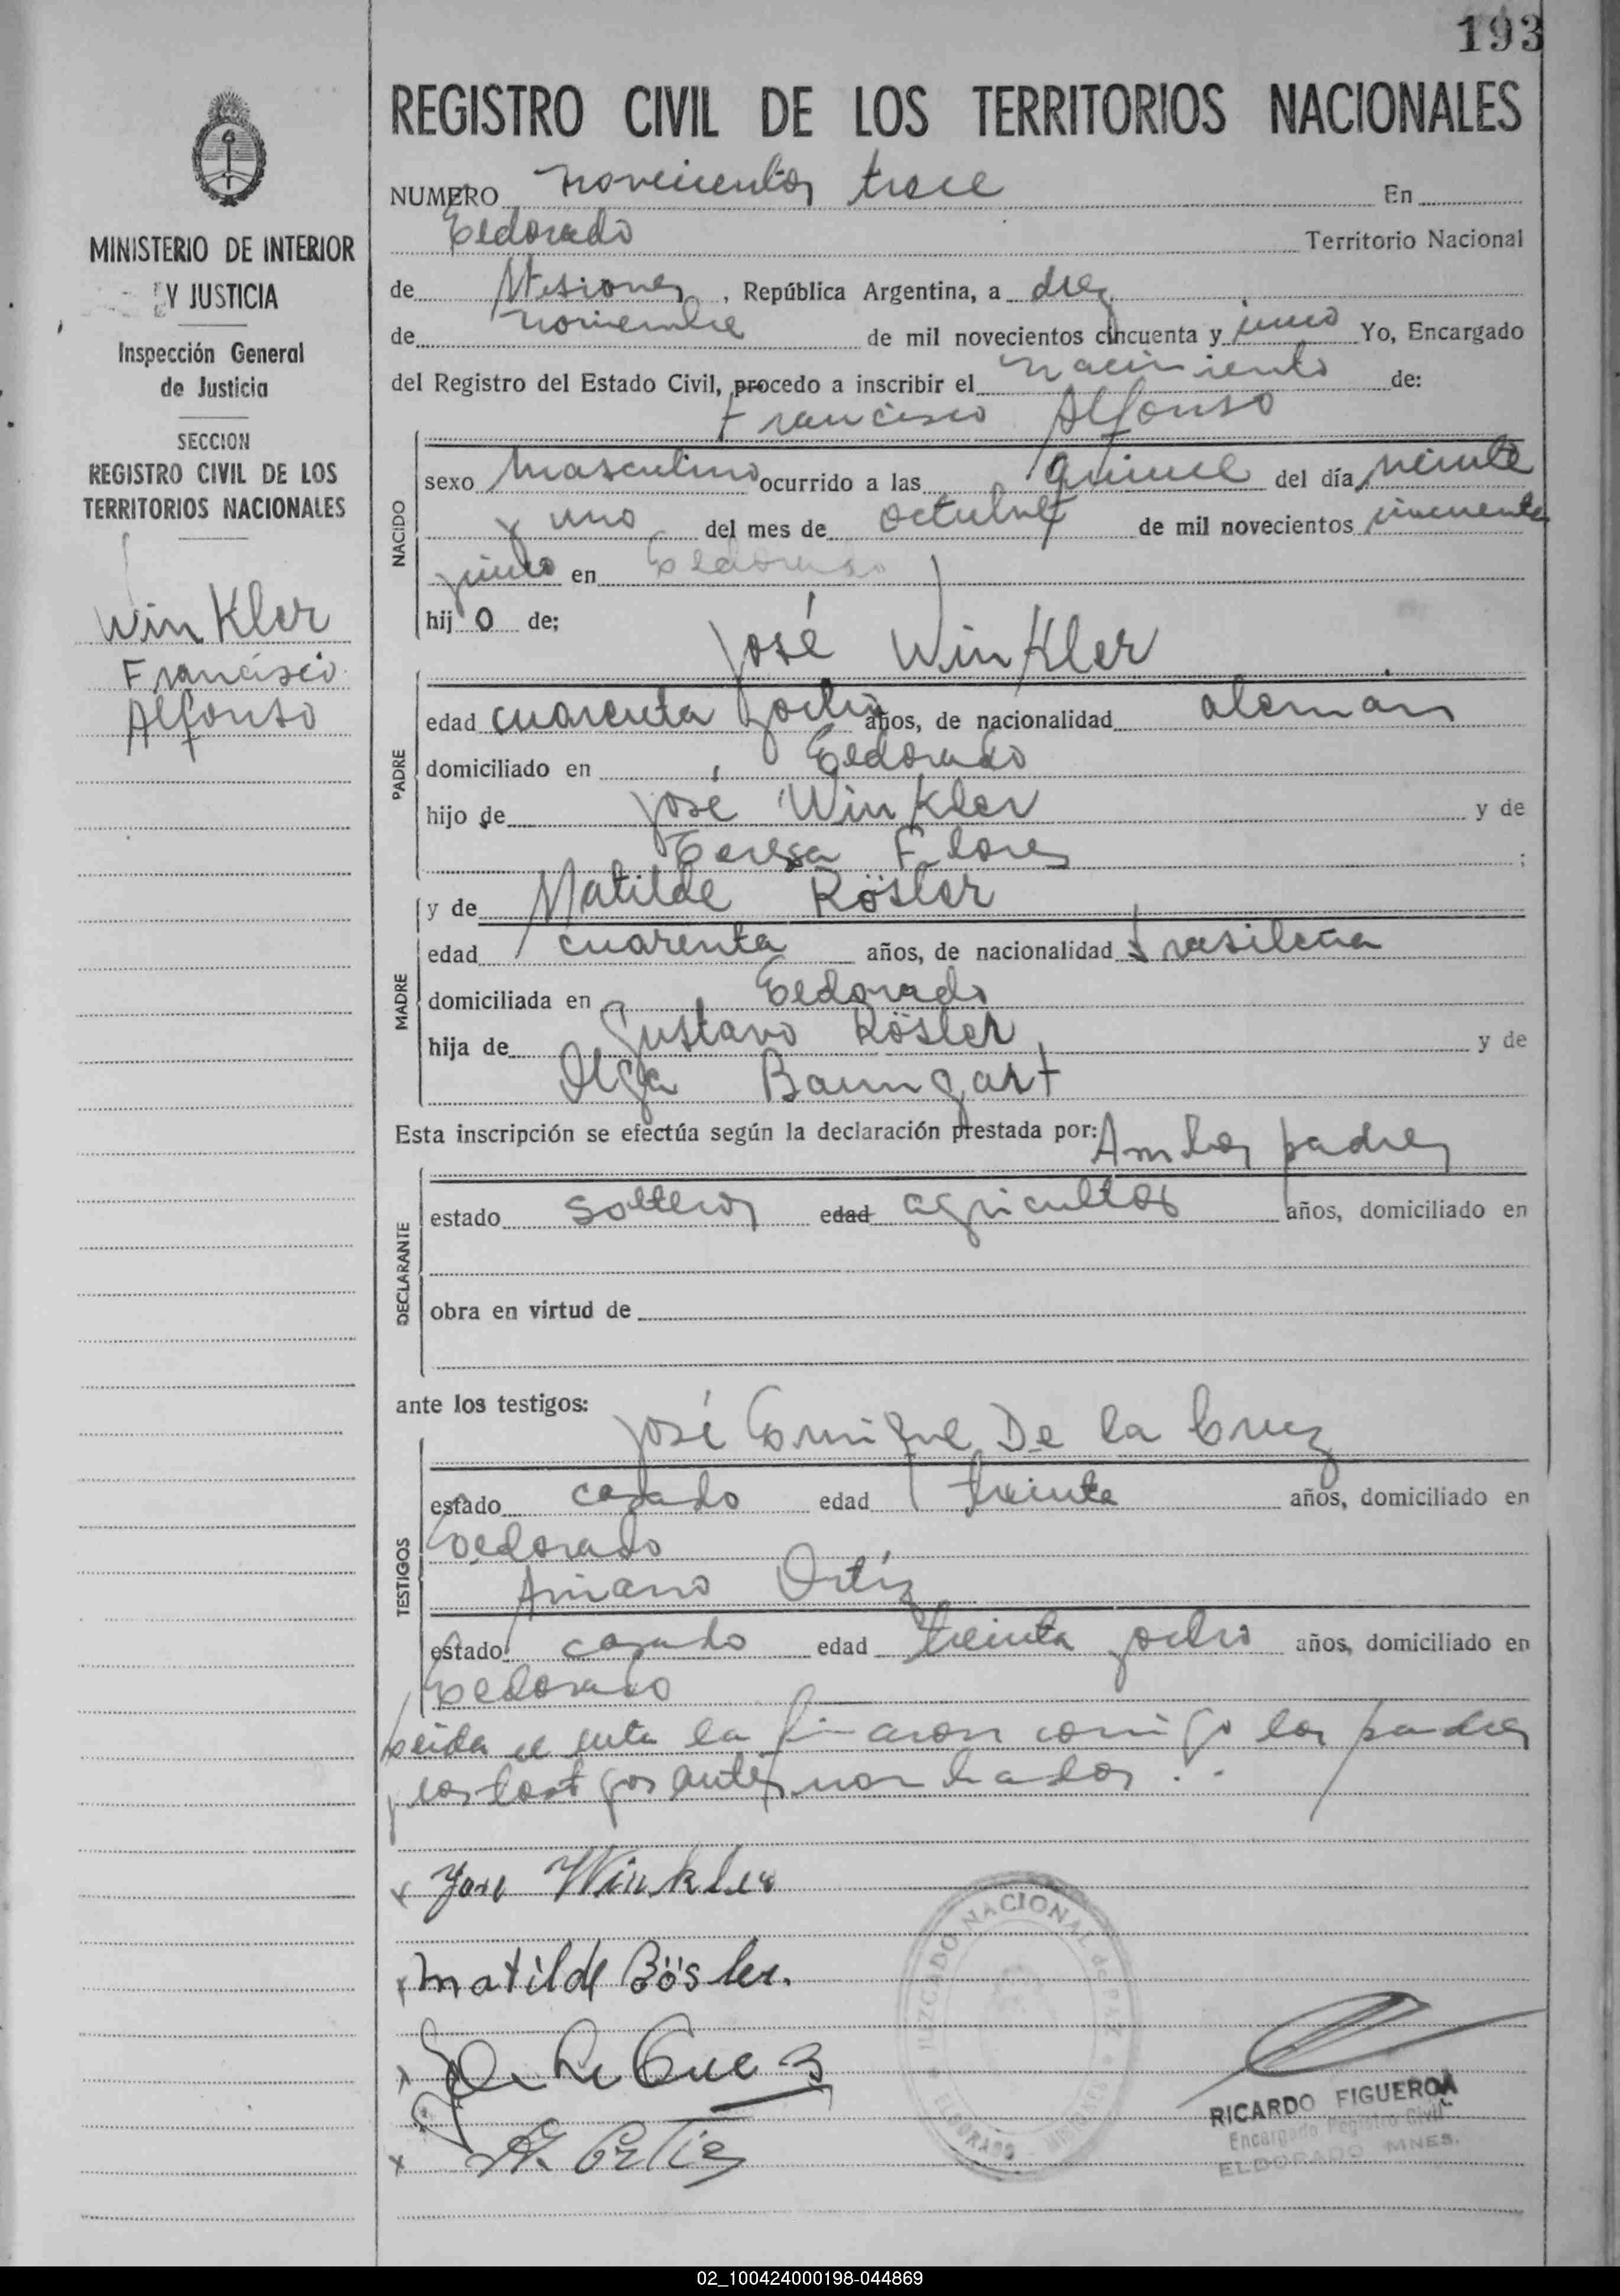 193
REGISTRO CIVIL DE LOS TERRITORIOS NACIONALES
MINISTERIO DE INTERIOR
Y JUSTICIA
Inspección General
de Justicia
SECCION
REGISTRO CIVIL DE LOS
TERRITORIOS NACIONALES
Winkler
Francisco
Alfonso
NUMERO novecientos trece En
Eldorado Territorio Nacional
de Misiones, República Argentina, a diez
de noviembre de mil novecientos cincuenta y uno Yo, Encargado
del Registro del Estado Civil, procedo a inscribir el nacimiento de:
Francisco Alfonso
NACIDO
sexo masculino ocurrido a las quince del día veinte
y uno del mes de octubre de mil novecientos cincuenta
y uno en Eldorado
hijo de:
José Winkler
PADRE
edad cuarenta y ocho años, de nacionalidad alemán
domiciliado en Eldorado
hijo de José Winkler y de
Teresa Flores ;
y de Matilde Rösler
MADRE
edad cuarenta años, de nacionalidad brasileña
domiciliada en Eldorado
hija de Gustavo Rösler y de
Olga Baumgart
Esta inscripción se efectúa según la declaración prestada por: Ambos padres
DECLARANTE
estado solteros edad agricultor años, domiciliado en
obra en virtud de
ante los testigos:
José Enrique De la Cruz
TESTIGOS
estado casado edad treinta años, domiciliado en
Eldorado
Ortíz
estado casado edad treinta y ocho años, domiciliado en
Eldorado
Leida el acta la firmaron conmigo los padres
y los testigos antes nombrados.
x José Winkler
x Matilde Rösler.
x De La Cruz
x A. Ortiz
JUZGADO NACIONAL de PAZ
ELDORADO MISIONES
RICARDO FIGUEROA
Encargado Registro Civil
ELDORADO MNES.
02_100424000198-044869